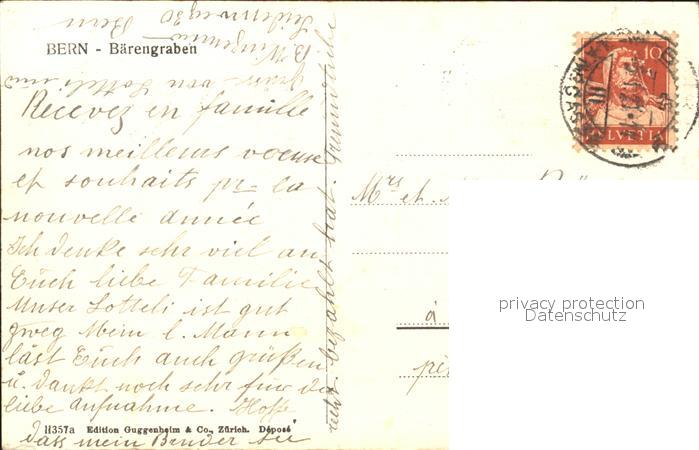 BERN - Bärengraben
Recevez en famille
nos meilleurs voeux
et souhaits pr la
nouvelle année
Ich denke sehr viel an
Euch liebe Familie
Unser Lotteli ist gut
zweg Mein l. Mann
läst Euch auch grüßen
u. dankt noch sehr für die
liebe Aufnahme. Hoffe
dass mein Bruder
H357a Edition Guggenheim & Co., Zürich. Déposé
B.
Bern
von Lotteli
bezahlt hat.
10
HELVETIA
Mrs et
à
privacy protection
Datenschutz